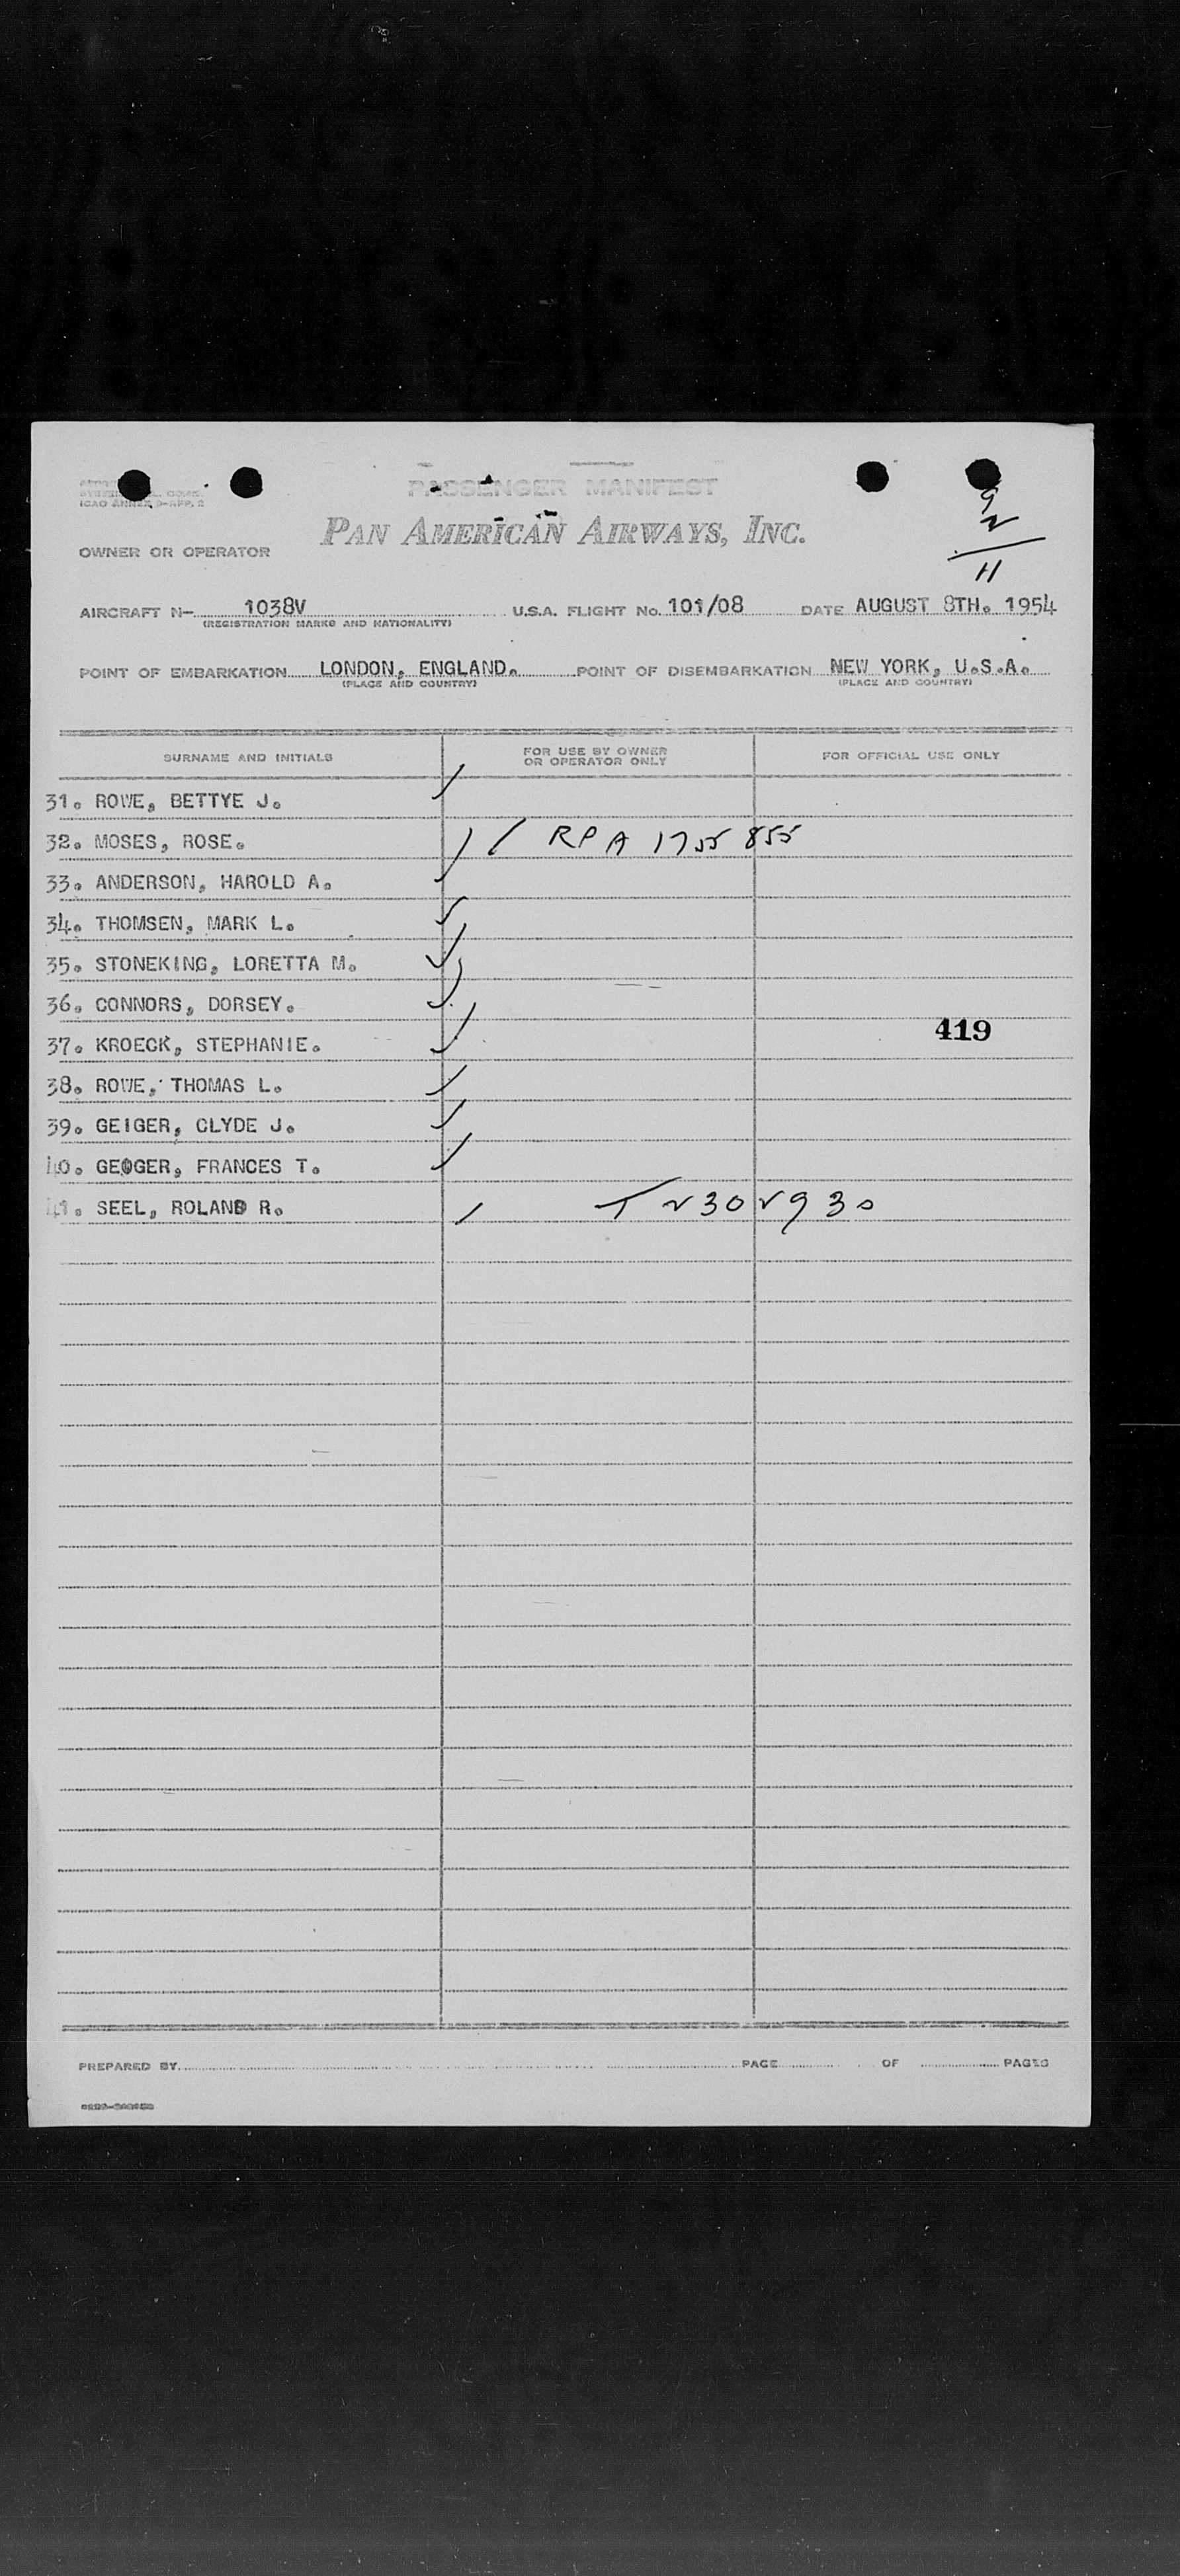 PASSENGER MANIFEST
ICAO ANNEX 9-APP. 2
PAN AMERICAN AIRWAYS, INC.
OWNER OR OPERATOR
9
2
11
AIRCRAFT N- 1038V U.S.A. FLIGHT No. 101/08 DATE AUGUST 8TH. 1954
(REGISTRATION MARKS AND NATIONALITY)
POINT OF EMBARKATION LONDON, ENGLAND. POINT OF DISEMBARKATION NEW YORK, U.S.A.
(PLACE AND COUNTRY) (PLACE AND COUNTRY)
SURNAME AND INITIALS FOR USE BY OWNER OR OPERATOR ONLY FOR OFFICIAL USE ONLY
31. ROWE, BETTYE J.
32. MOSES, ROSE. RPA 1755 855
33. ANDERSON, HAROLD A.
34. THOMSEN, MARK L.
35. STONEKING, LORETTA M.
36. CONNORS, DORSEY.
419
37. KROECK, STEPHANIE.
38. ROWE, THOMAS L.
39. GEIGER, CLYDE J.
40. GEOGER, FRANCES T.
41. SEEL, ROLAND R. T 2302930
PREPARED BY PAGE OF PAGES